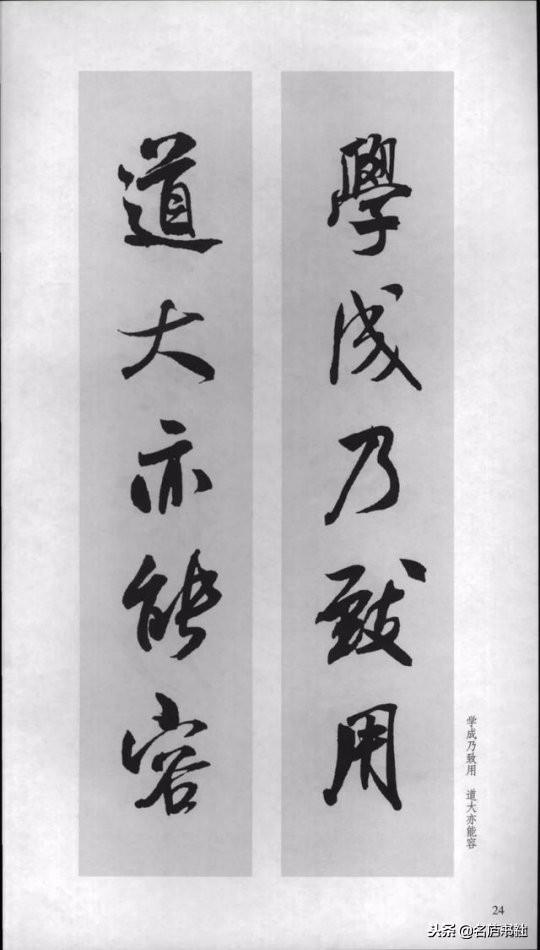 學成乃致用
道大亦能容
学成乃致用　道大亦能容
24
头条 @名庐书社